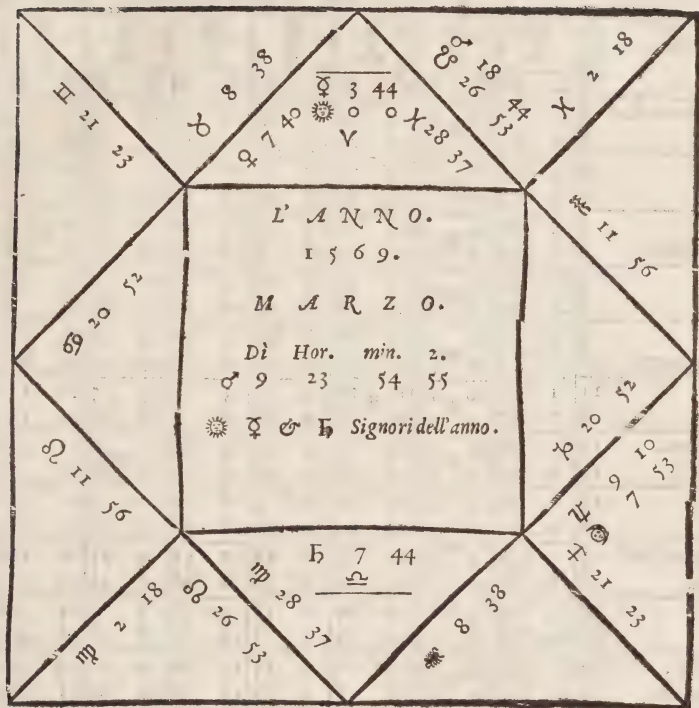 ♊ 21 23
♉ 8 38
☿ 3 44
♀ 7 40 ☀ 0 0 ♓ 28 37
♈
♂ 18 44
☋ 26 53
♓ 2 18
♒ 11 56
♋ 20 52
L'ANNO.
1569.
MARZO.
Dì Hor. min. 2.
♂ 9 23 54 55
☀ ☿ & ♄ Signori dell'anno.
♑ 20 52
♃ 9 10
☽ 7 53
♐ 21 23
♌ 11 56
♍ 2 18
☊ 26 53
♍ 28 37
♄ 7 44
♎
♏ 8 38